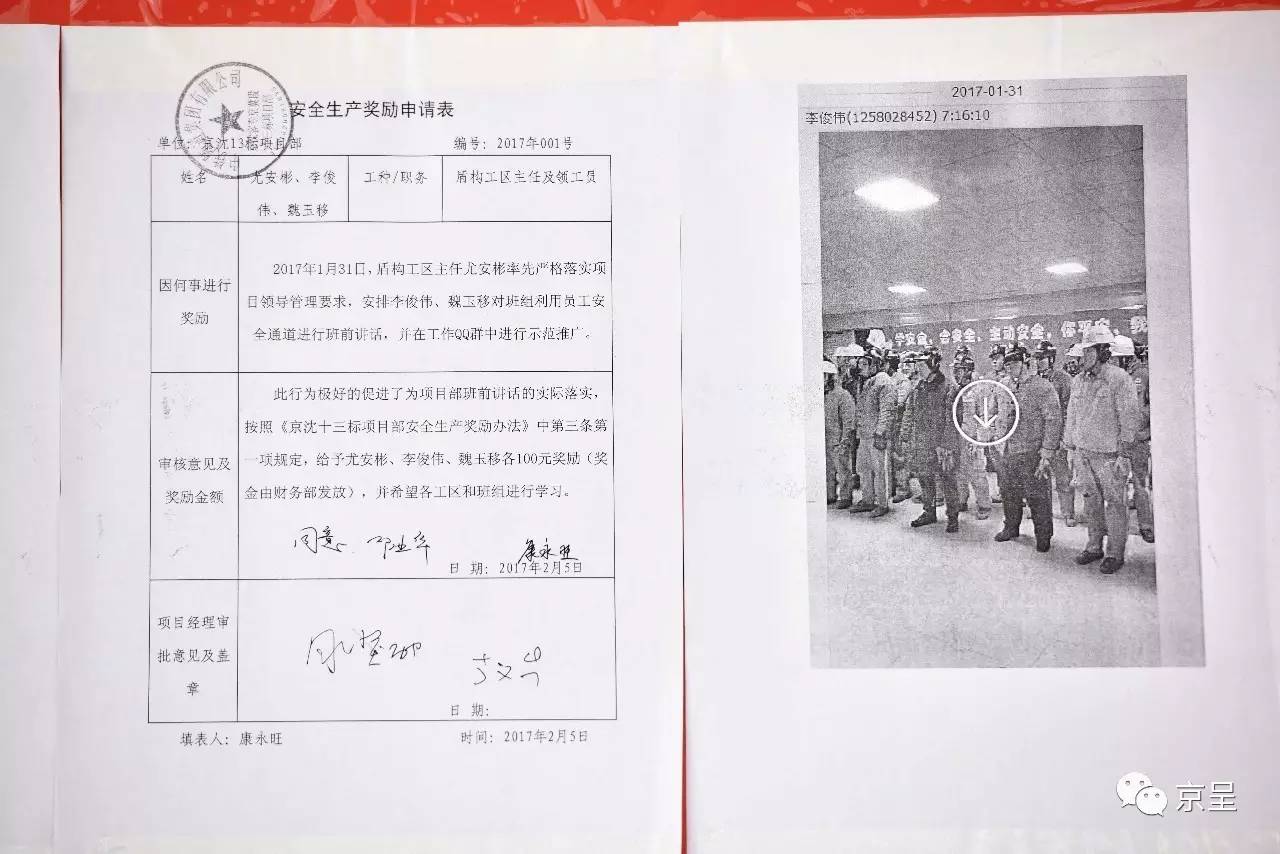 安全生产奖励申请表
单位：京沈13标项目部
编号：2017年001号
姓名
尤安彬、李俊
伟、魏玉移
工种/职务
盾构工区主任及领工员
因何事进行
奖励
2017年1月31日，盾构工区主任尤安彬率先严格落实项
目领导管理要求，安排李俊伟、魏玉移对班组利用员工安
全通道进行班前讲话，并在工作QQ群中进行示范推广。
审核意见及
奖励金额
此行为极好的促进了为项目部班前讲话的实际落实，
按照《京沈十三标项目部安全生产奖励办法》中第三条第
一项规定，给予尤安彬、李俊伟、魏玉移各100元奖励（奖
金由财务部发放），并希望各工区和班组进行学习。
同意
康永旺
日 期：2017年2月5日
项目经理审
批意见及盖
章
日 期：
填表人：康永旺
时间：2017年2月5日
2017-01-31
李俊伟(1258028452) 7:16:10
学安全、会安全、主动安全，你平安、我
京呈